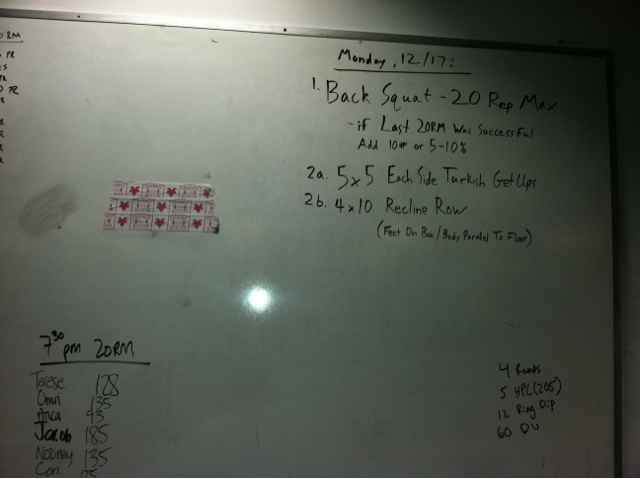 RM
PR
PR
Monday, 12/17:
1. Back Squat - 20 Rep Max
- if Last 20RM Was Successful
Add 10# or 5-10%
2a. 5x5 Each Side Turkish Get Ups
2b. 4x10 Recline Row
(Feet On Box/Body Parallel To Floor)
7:30 pm 20RM
Terese 128
Omri 135
Anca 93
Jacob 185
Nooney 135
Cori 125
4 Rounds
5 HPC (205)
12 Ring Dip
60 DU